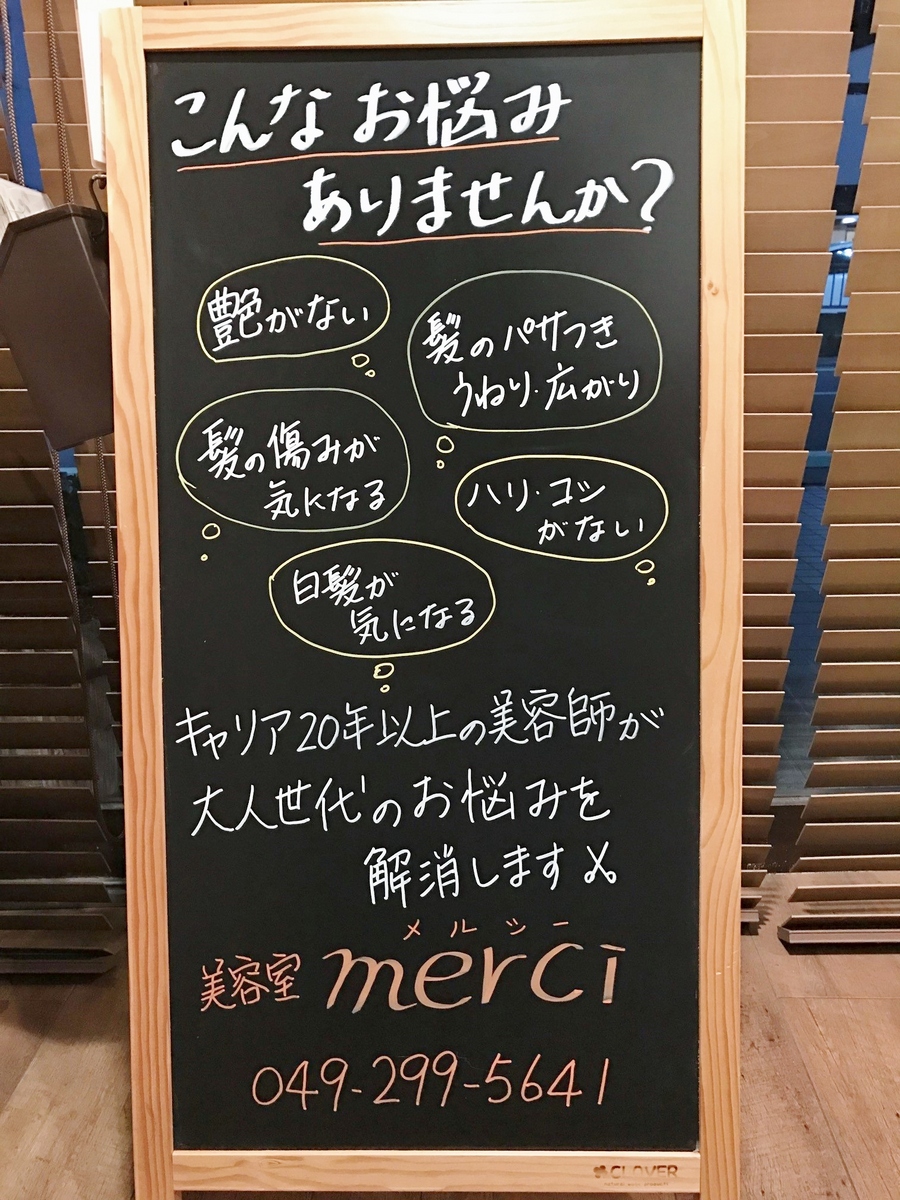 こんなお悩み
ありませんか?
艶がない
髪のパサつき
うねり・広がり
髪の傷みが
気になる
ハリ・コシ
がない
白髪が
気になる
キャリア20年以上の美容師が
大人世代のお悩みを
解消します
メルシー
美容室 merci
049-299-5641
CLOVER